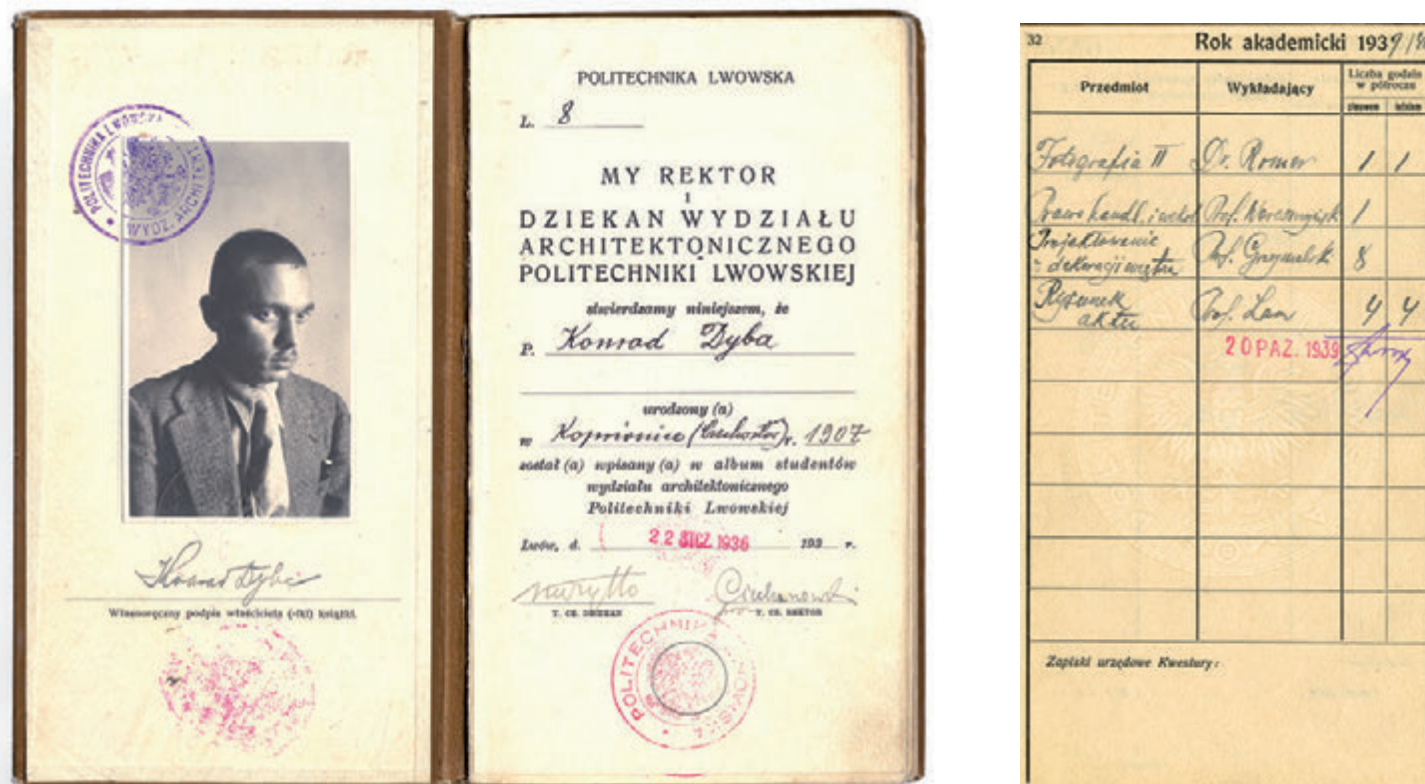 POLITECHNIKA LWOWSKA
WYDZ. ARCHITEKT.
Konrad Dyba
Własnoręczny podpis właściciela (-lki) książki.
POLITECHNIKA LWOWSKA
L. 8
MY REKTOR
I
DZIEKAN WYDZIAŁU
ARCHITEKTONICZNEGO
POLITECHNIKI LWOWSKIEJ
stwierdzamy niniejszem, że
P. Konrad Dyba
urodzony (a)
w r. 1907
został (a) wpisany (a) w album studentów
wydziału architektonicznego
Politechniki Lwowskiej
Lwów, d. 22 STCZ. 1936 193 r.
Ciechanowski
T. CZ. DZIEKAN T. CZ. REKTOR
POLITECHNIKA LWOWSKA
32 Rok akademicki 1939/
Przedmiot Wykładający Liczba godzin
w półroczu
zimowem letniem
Fotografia II Dr. Romer 1 1
Prawo handl. i weksl. Prof. 1
Projektowanie
i dekoracji wnętrz Prof. 8
Rysunek
aktu Prof. Lam 4 4
20 PAŹ. 1939
Zapiski urzędowe Kwestury: